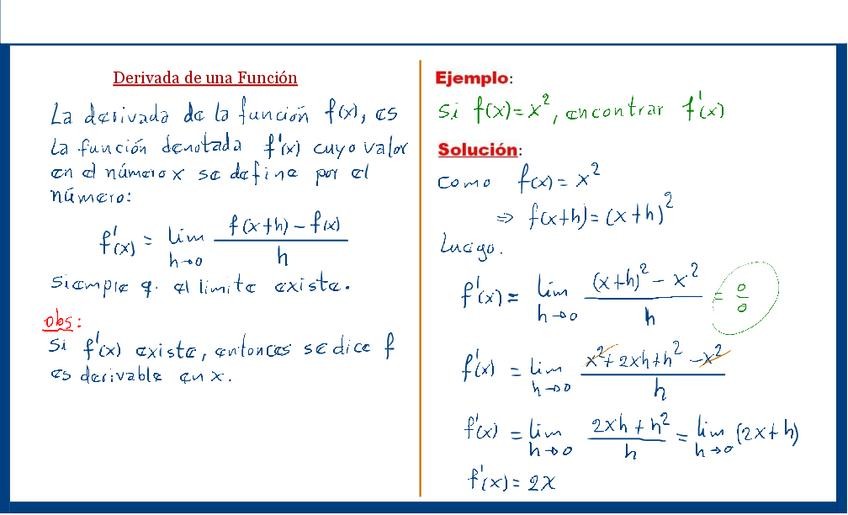 Derivada de una Función
La derivada de la función f(x), es
la función denotada f'(x) cuyo valor
en el número x se define por el
número:
f'(x) = lim h→0 (f(x+h) − f(x)) / h
siempre q. el límite exista.
obs:
Si f'(x) existe, entonces se dice f
es derivable en x.
Ejemplo:
Si f(x) = x², encontrar f'(x)
Solución:
como f(x) = x²
⇒ f(x+h) = (x+h)²
Luego.
f'(x) = lim h→0 ((x+h)² − x²) / h = 0/0
f'(x) = lim h→0 (x² + 2xh + h² − x²) / h
f'(x) = lim h→0 (2xh + h²) / h = lim h→0 (2x + h)
f'(x) = 2x